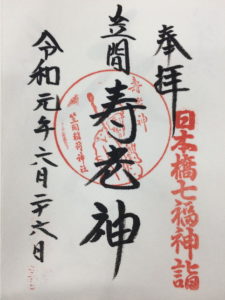 奉拝
日本橋七福神詣
笠間
寿老神
笠間稲荷神社
令和元年六月二十六日